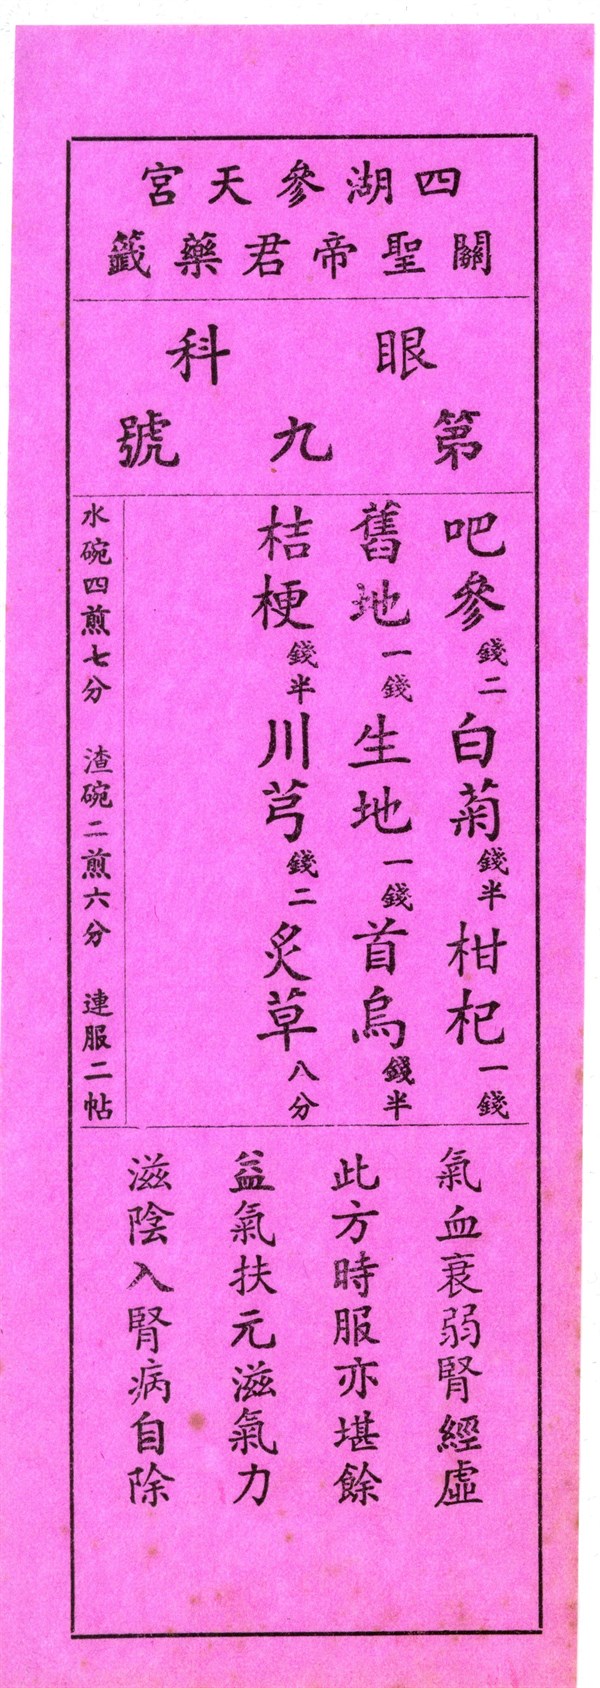 四湖參天宮
關聖帝君藥籤
眼科
第九號
吧參錢二白菊錢半柑杞一錢
舊地一錢生地一錢首烏錢半
桔梗錢半川芎錢二炙草八分
水碗四煎七分 渣碗二煎六分 連服二帖
氣血衰弱腎經虛
此方時服亦堪餘
益氣扶元滋氣力
滋陰入腎病自除